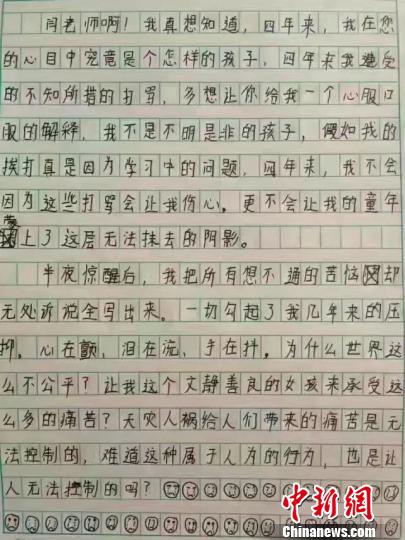 闫老师啊！我真想知道，四年来，我在您
的心目中究竟是个怎样的孩子，四年来我遭受
的不知所措的打骂，多想让你给我一个心服口
服的解释，我不是不明是非的孩子，假如我的
挨打真是因为学习中的问题，四年来，我不会
因为这些打骂会让我伤心。更不会让我的童年
蒙上了这层无法抹去的阴影。
半夜惊醒后，我把所有想不通的苦恼却
无处诉说全写出来。一切勾起了我几年来的压
抑，心在颤，泪在流，手在抖。为什么世界这
么不公平？让我这个文静善良的女孩来承受这
么多的痛苦？天灾人祸给人们带来的痛苦是无
法控制的，难道这种属于人为的行为，也是让
人无法控制的吗？
中新网
www.chinanews.com